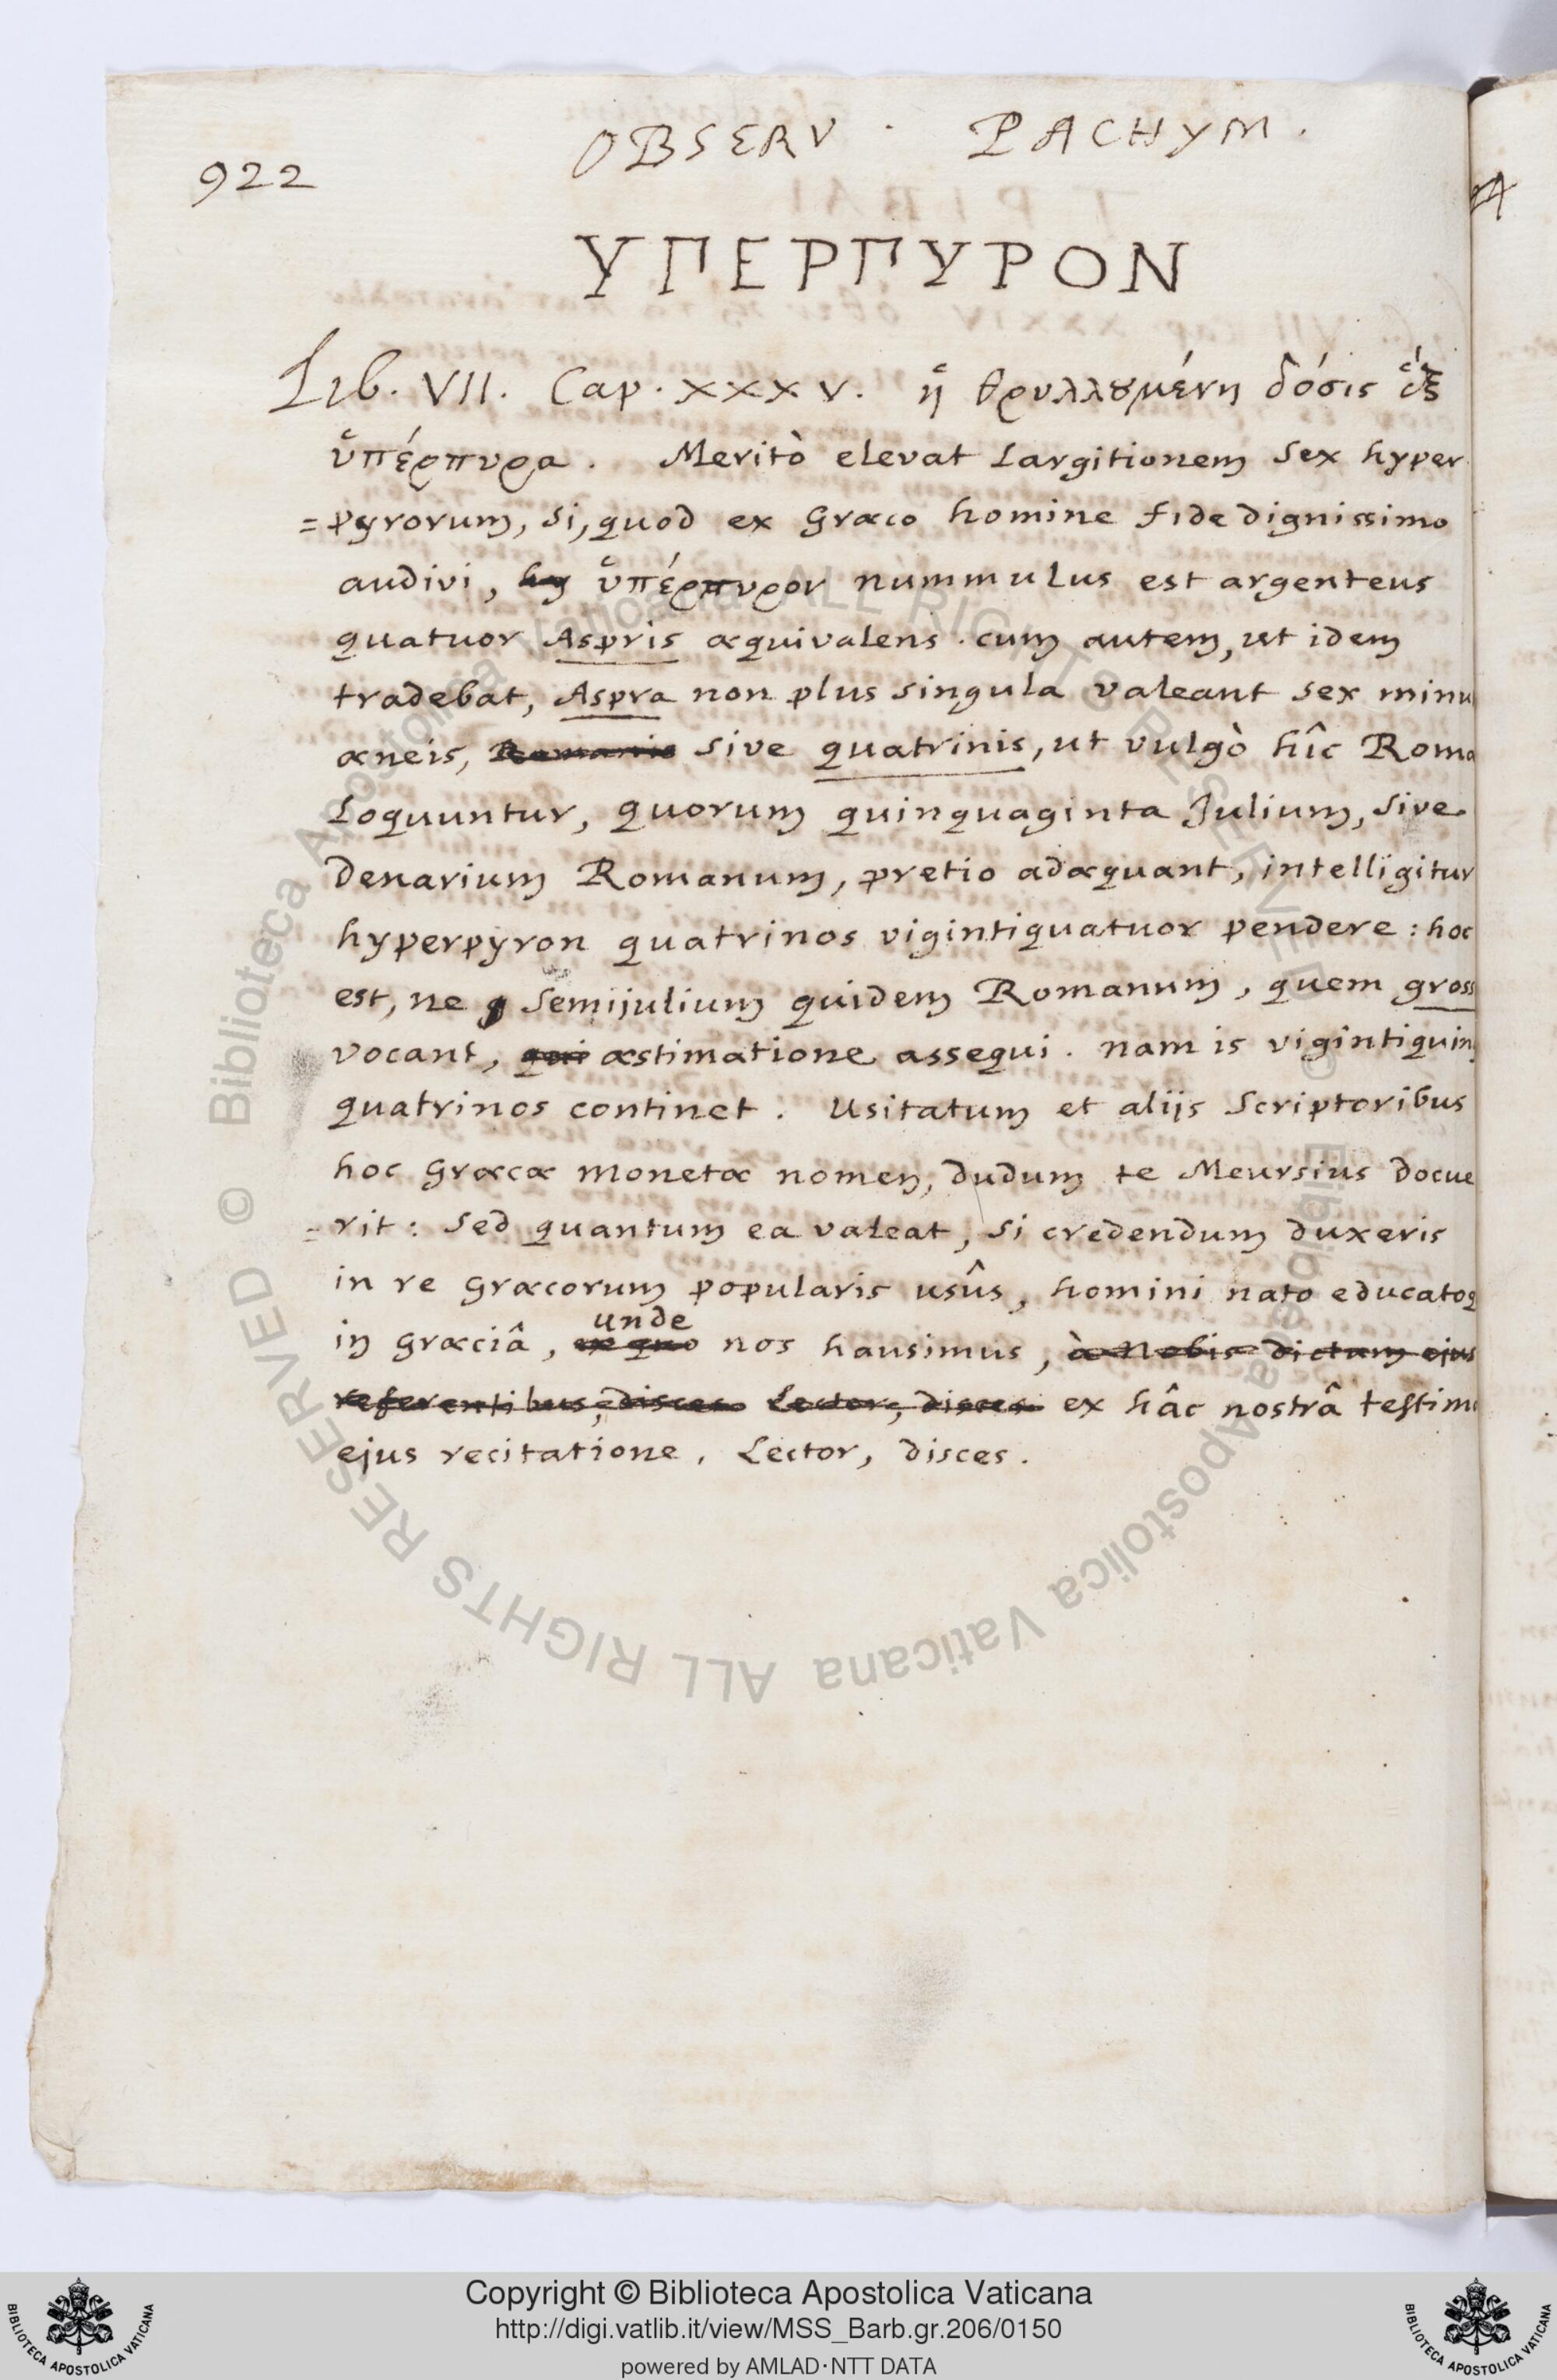 922
OBSERV. PACHYM.
ΥΠΕΡΠΥΡΟΝ
Lib. VII. Cap. XXXV. ἡ θρυλλȣμένη δόσις ἓξ
ὑπέρπυρα. Meritò elevat largitionem sex hyper
=pyrorum, si, quod ex Græco homine fide dignissimo
audivi, hy ὑπέρπυρον nummulus est argenteus
quatuor Aspris æquivalens. cum autem, ut idem
tradebat, Aspra non plus singula valeant sex minu
æneis, Romanis sive quatrinis, ut vulgò hîc Roma
loquuntur, quorum quinquaginta Julium, sive
denarium Romanum, pretio adæquant, intelligitur
hyperpyron quatrinos vigintiquatuor pendere: hoc
est, ne semijulium quidem Romanum, quem gross
vocant, qui æstimatione assequi. nam is vigintiquin
quatrinos continet. Usitatum et alijs Scriptoribus
hoc Græcæ monetæ nomen, dudum te Meursius docue
-rit: sed quantum ea valeat, si credendum duxeris
in re Græcorum popularis usûs, homini nato educatoq
unde
in græciâ, ex quo nos hausimus, à nobis dictam ejus
referentibus, disces Lector, disces ex hâc nostrâ testimo
ejus recitatione, Lector, disces.
A
© Biblioteca Apostolica Vaticana ALL RIGHTS RESERVED
© Biblioteca Apostolica Vaticana ALL RIGHTS RESERVED
Copyright © Biblioteca Apostolica Vaticana
http://digi.vatlib.it/view/MSS_Barb.gr.206/0150
powered by AMLAD·NTT DATA
BIBLIOTECA APOSTOLICA VATICANA
BIBLIOTECA APOSTOLICA VATICANA